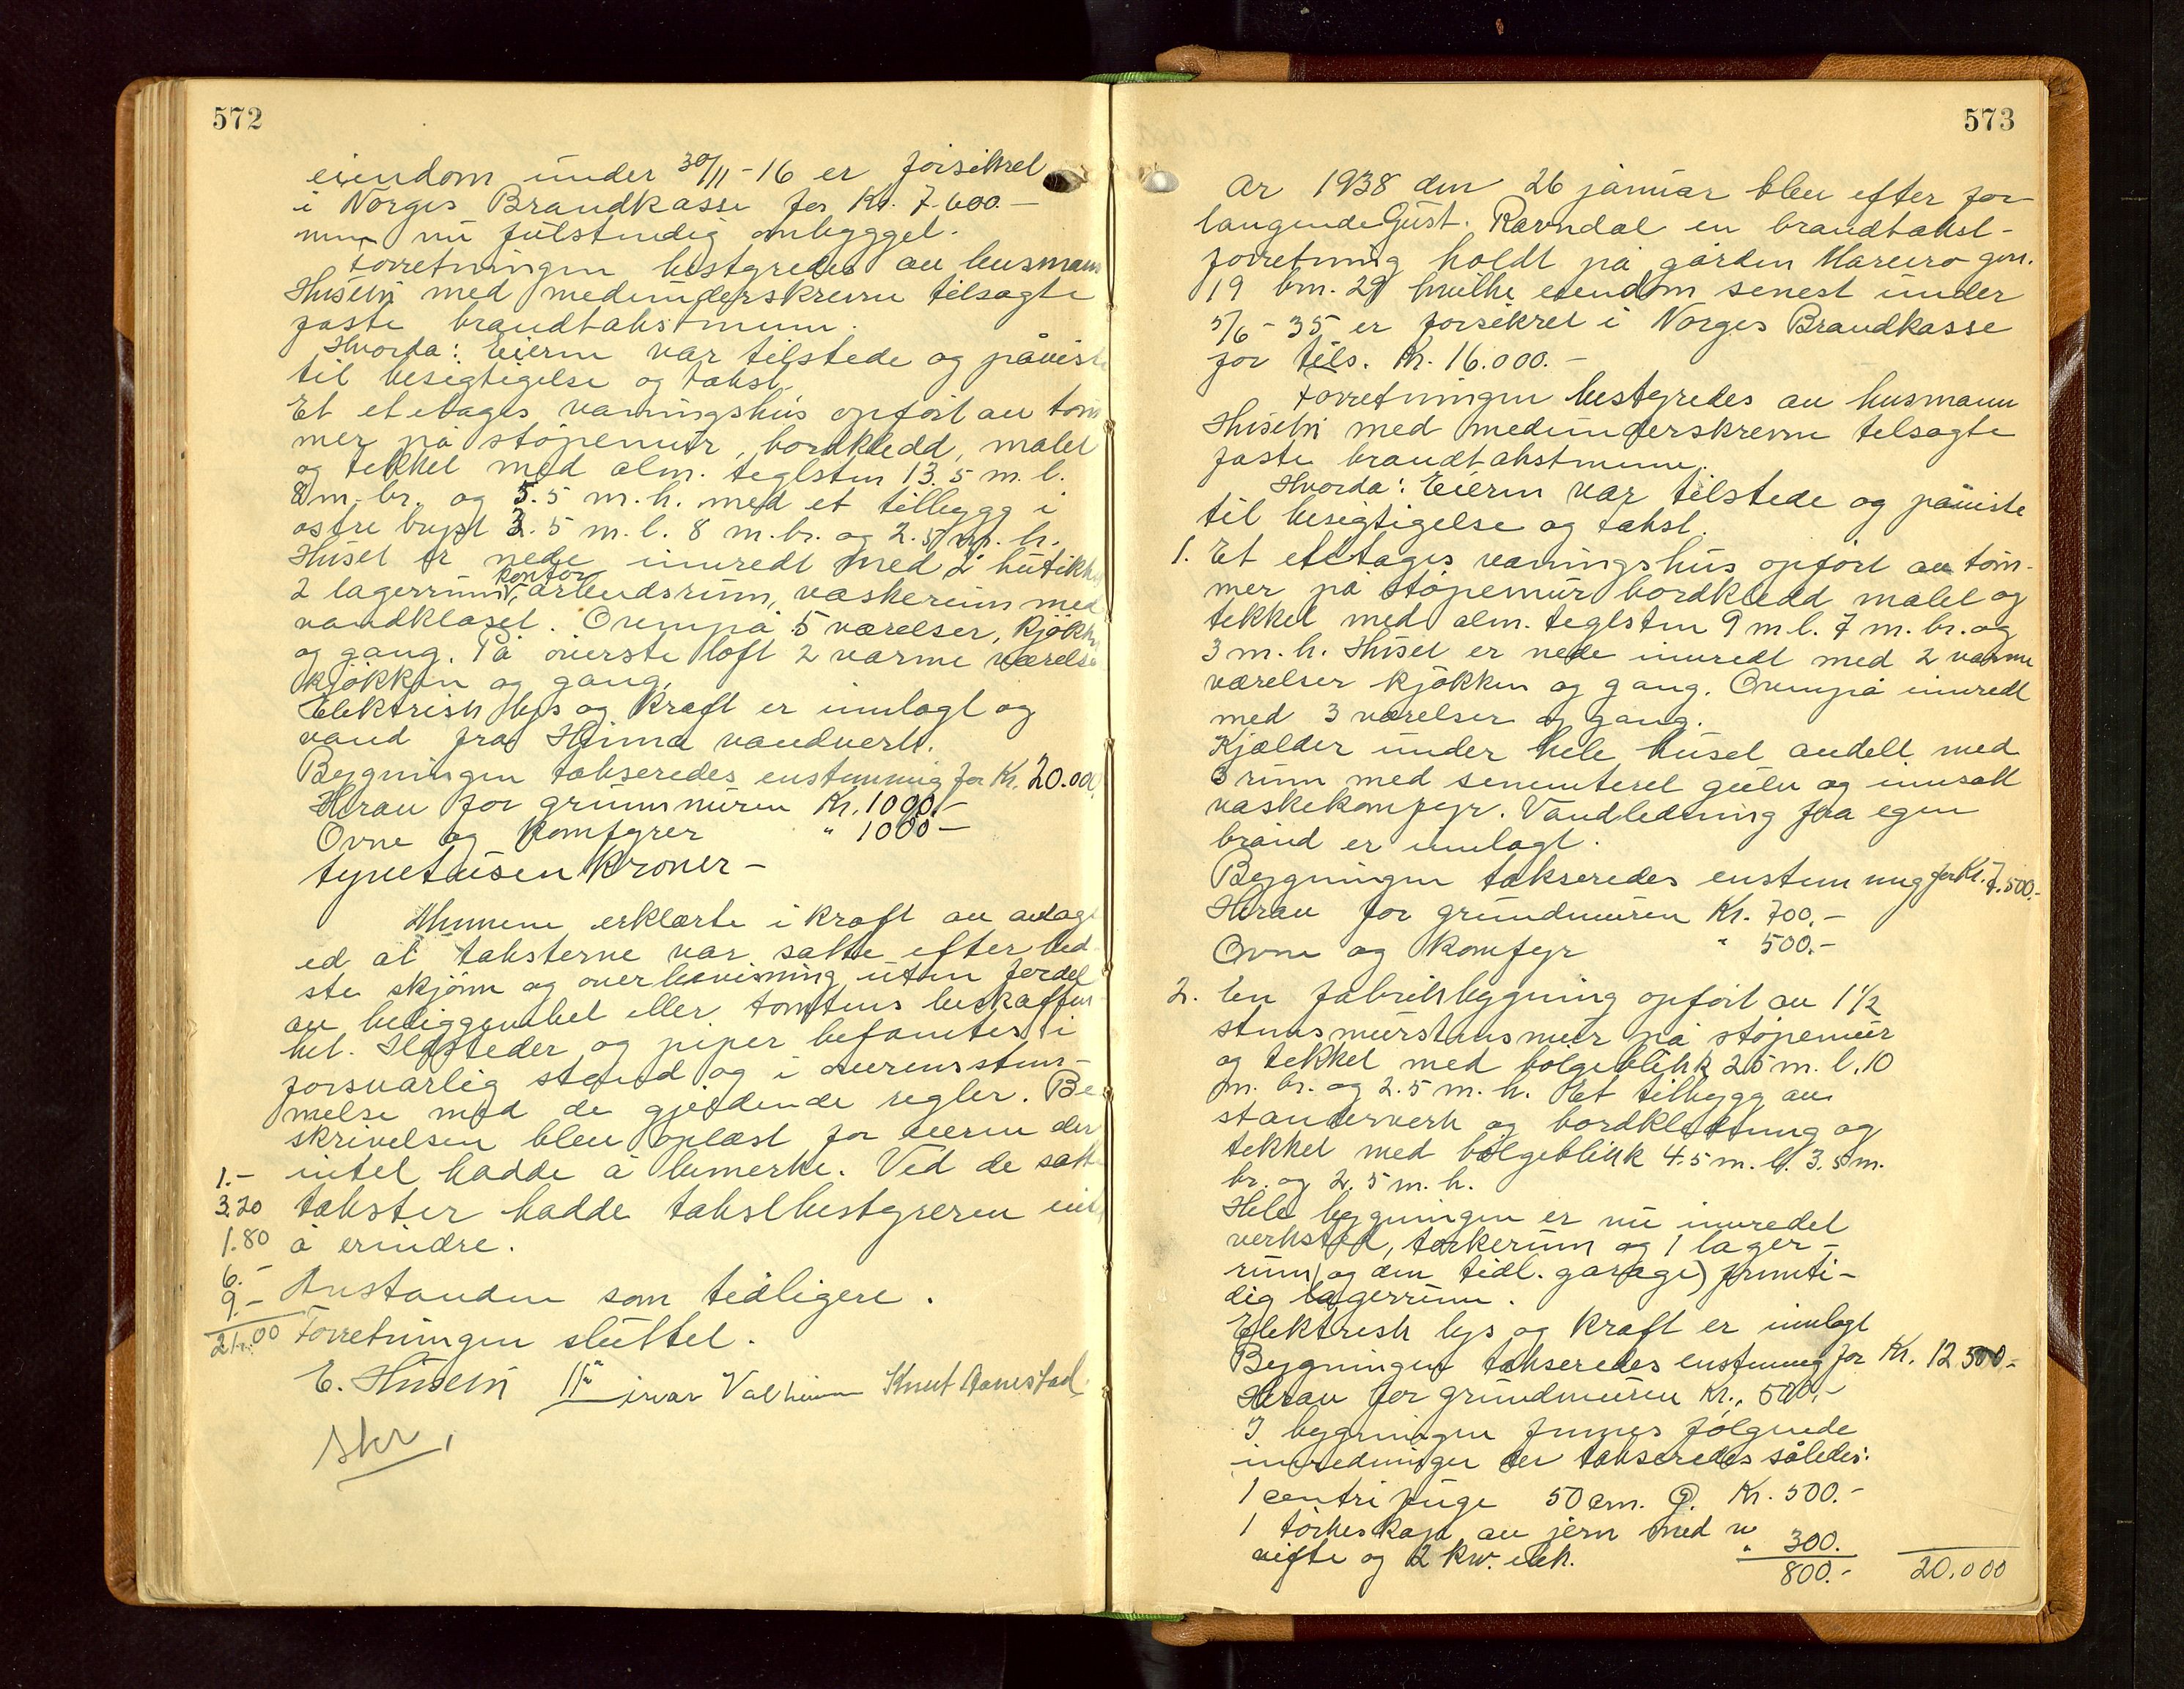 572
eiendom under 30/11-16 er forsikret
i Norges Brandkasse for Kr. 7.600.-
men nu fulstendig ombygget.
Forretningen bestyredes av lensmann
Husebø med medunderskrevne tilsagte
faste brandtakstmenn.
Hvorda: Eieren var tilstede og påviste
til besigtigelse og takst.
Et etetages vaningshus opført av tøm
mer på støpemur, bordkledd, malet
og tekket med alm. teglsten 13.5 m. l.
8 m. br. og 5.5 m. h. med et tilbygg i
østre 3.5 m. l. 8 m. br. og 2.5 m. h.
Huset er nede innredt med 2 butikker
kontor
2 lagerrum, arbeidsrum, vaskerum med
vandkloset. Ovenpå 5 værelser, kjøkken
og gang. På øverste loft 2 varme værelser
kjøkken og gang.
Elektrisk lys og kraft er innlagt og
vand fra vandverk.
Bygningen takseredes enstemmig for Kr. 20.000.
Herav for grunnmuren Kr. 1000.-
Ovne og Komfyrer " 1000.-
tyvetusen Kroner -
Mennene erklærte i kraft av avlagt
ed at taksterne var satte efter bed-
ste skjønn og overbevisning uten fordel
av beliggenhet eller tomtens beskaffen-
het. Ildsteder og piper befantes i
forsvarlig stand og i overensstem-
melse med de gjeldende regler. Be
skrivelsen blev oplæst for eieren der
1.- intet hadde å bemerke. Ved de satte
3.20 takster hadde takstbestyreren intet
1.80 å erindre.
6.-
9.- Avstanden som tidligere.
21.00 Forretningen sluttet.
E. Husebø Einar Valheim Knut Aanestad
Skr.
573
År 1938 den 26 januar blev efter for
langende Gust. Ravndal en brandtakst-
forretning holdt på gården Mareiro gnr.
19 bnr. 29 hvilke eiendom senest under
5/6-35 er forsikret i Norges Brandkasse
for tils. Kr. 16.000.-
Forretningen bestyredes av lensmann
Husebø med medunderskrevne tilsagte
faste brandtakstmenn.
Hvorda: Eieren var tilstede og påviste
til besigtigelse og takst.
1. Et etetages vaningshus opført av tøm-
mer på støpemur bordkledd malet og
tekket med alm. teglsten 9 m l. 7 m. br. og
3 m. h. Huset er nede innredt med 2 varme
værelser kjøkken og gang. Ovenpå innredt
med 3 værelser og gang.
Kjælder under hele huset andelt med
3 rum med sementeret gulv og innsatt
vaskekomfyr. Vandledning fra egen
brønd er innlagt.
Bygningen takseredes enstemmig for Kr. 7.500.-
Herav for grundmuren Kr. 700.-
Ovne og Komfyr " 500.-
2. En fabrikbygning opført av 1½
stens murstensmur på støpemur
og tekket med bølgeblikk 25 m. l. 10
m. br. og 2.5 m. h. Et tilbygg av
standerverk og bordkledning og
tekket med bølgeblikk 4.5 m. l. 3.5 m.
br. og 2.5 m. h.
Hele bygningen er nu innredet
verksted, tørkerum og 1 lager-
rum (og den tidl. garage) fremti-
dig lagerrum.
Elektrisk lys og kraft er innlagt
Bygningen takseredes enstemmig for Kr. 12.500.-
Herav for grundmuren Kr. 500.-
I bygningen finnes følgende
innredninger der takseredes således:
1 centrifuge 50 cm. Kr. 500.-
1 tørkeskap av jern med
vifte og 2 kw. elek. " 300.
800.- 20.000